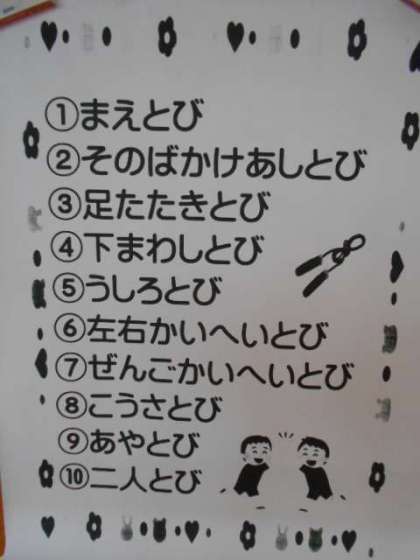 ①まえとび
②そのばかけあしとび
③足たたきとび
④下まわしとび
⑤うしろとび
⑥左右かいへいとび
⑦ぜんごかいへいとび
⑧こうさとび
⑨あやとび
⑩二人とび